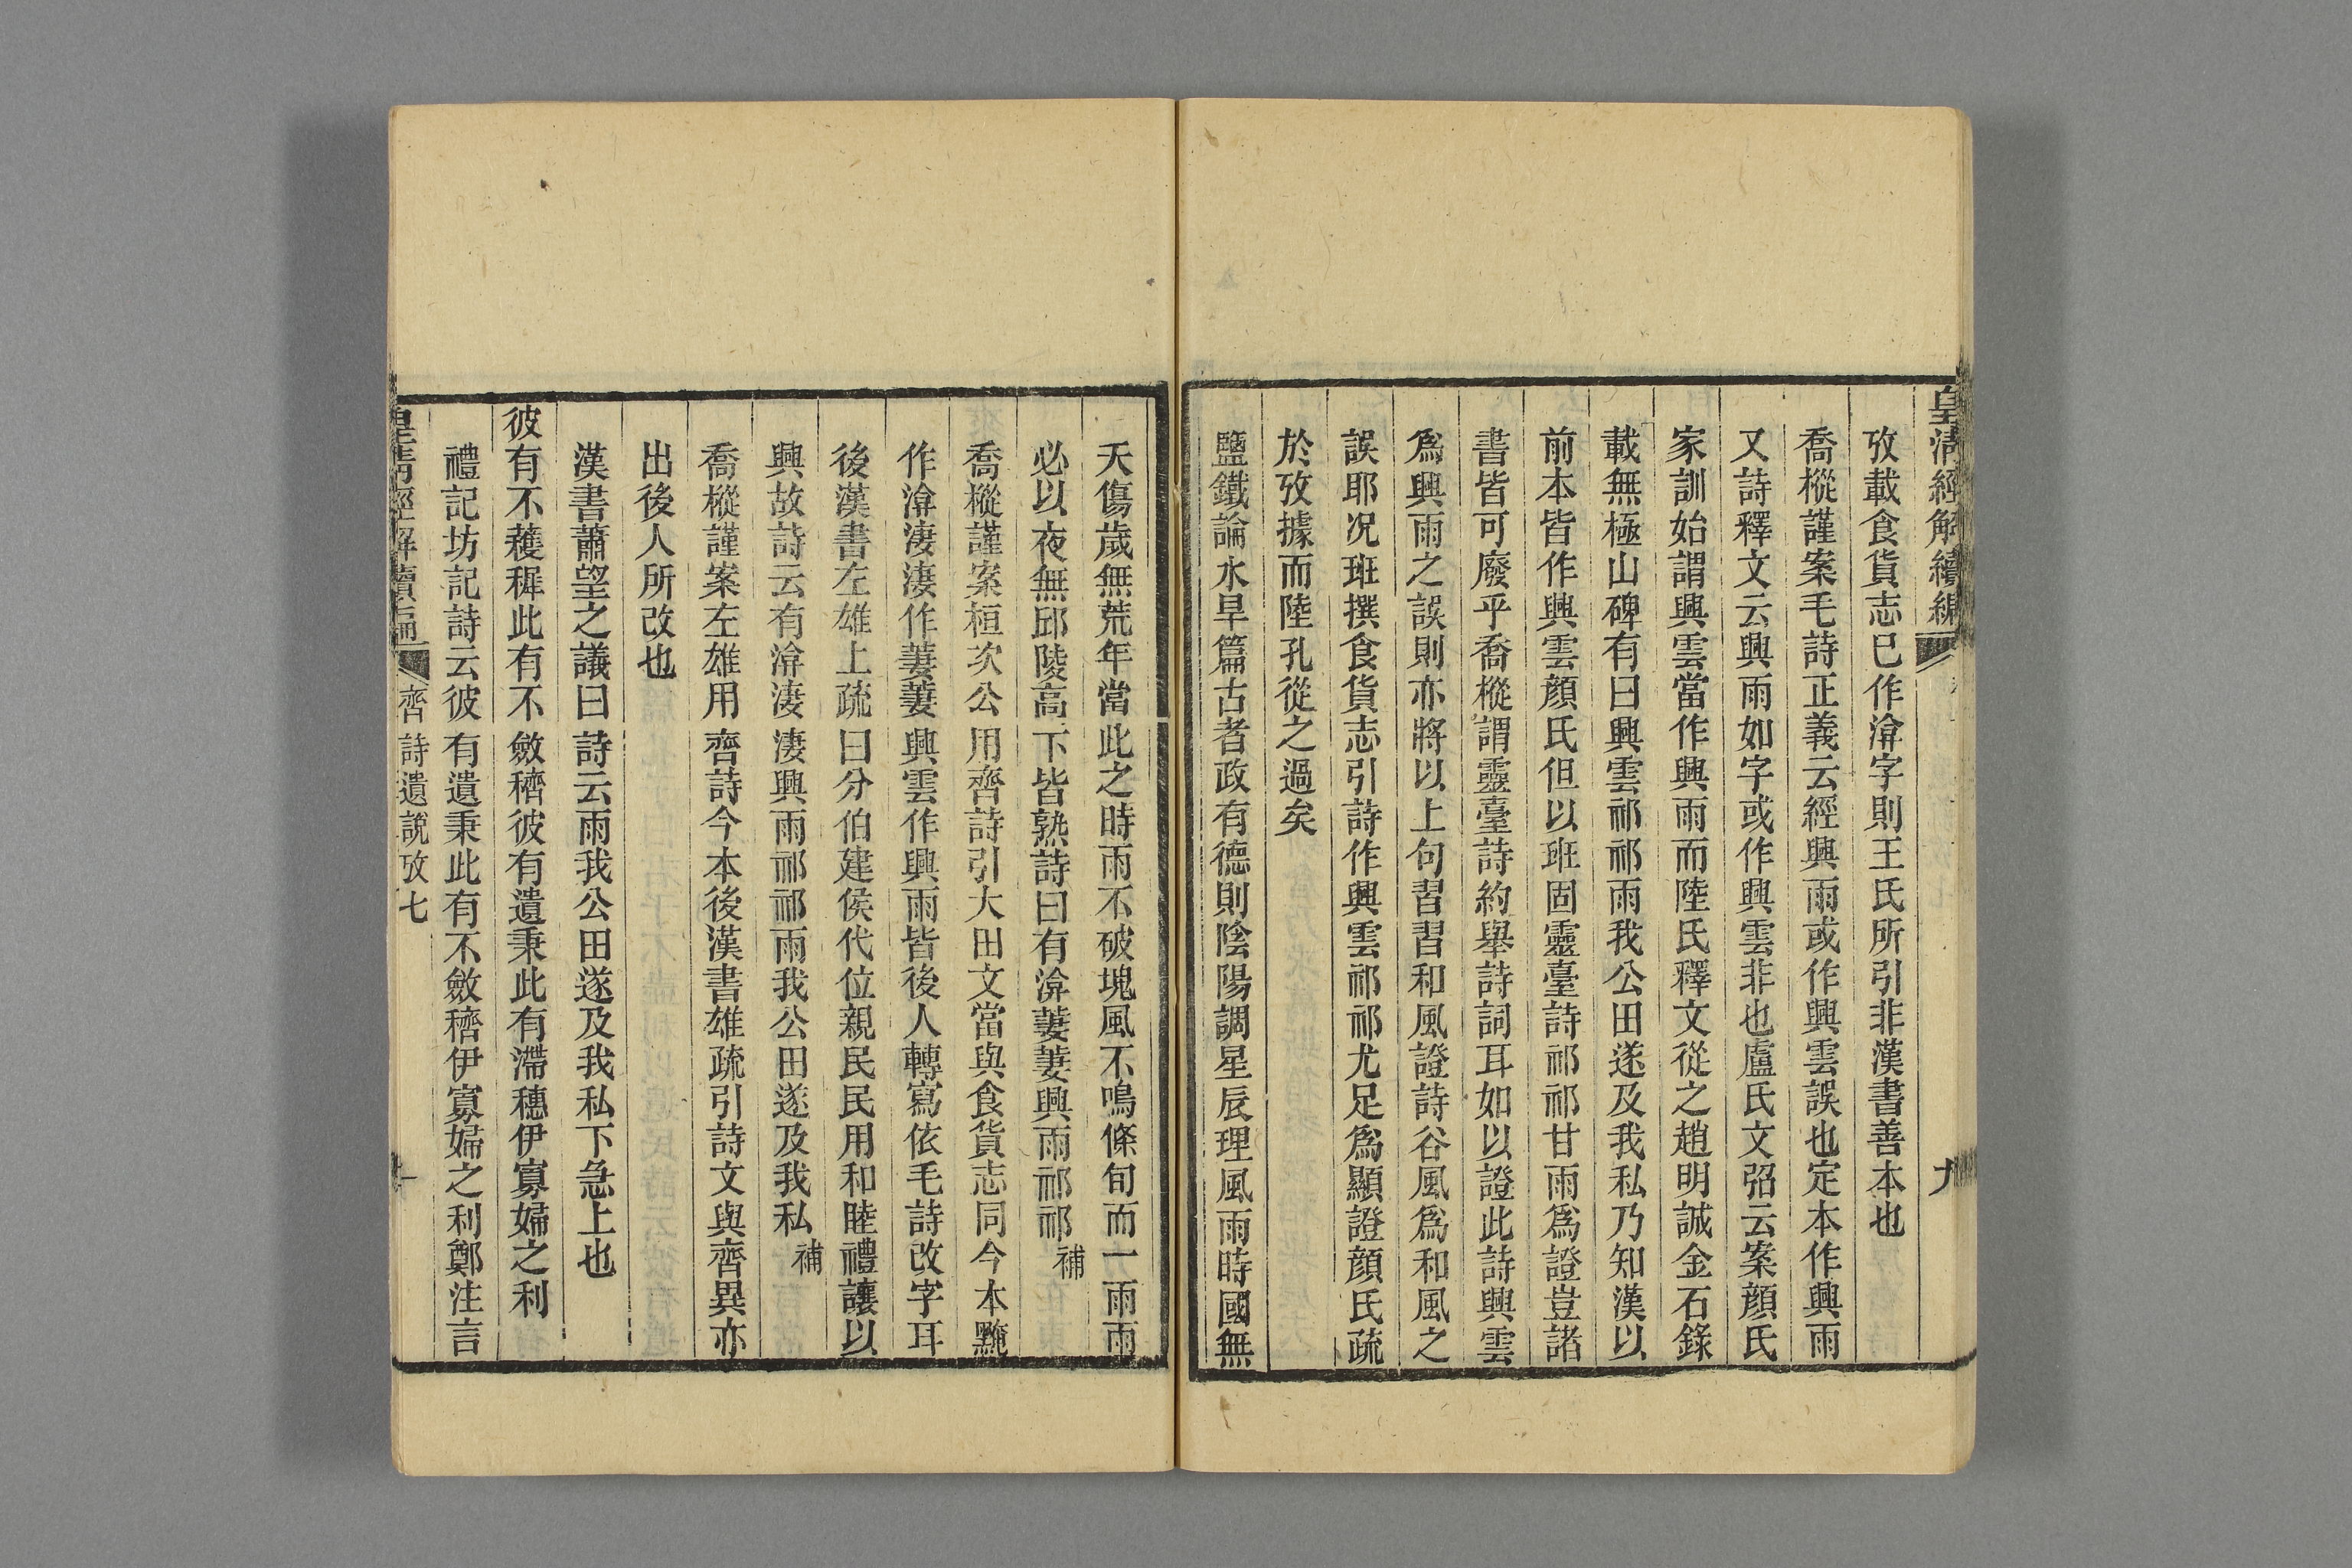 皇清經解續編
九
攷載食貨志已作渰字則王氏所引非漢書善本也
喬樅謹案毛詩正義云經興雨或作興雲誤也定本作興雨
又詩釋文云興雨如字或作興雲非也盧氏文弨云案顏氏
家訓始謂興雲當作興雨而陸氏釋文從之趙明誠金石錄
載無極山碑有曰興雲祁祁雨我公田遂及我私乃知漢以
前本皆作興雲顏氏但以班固靈臺詩祁祁甘雨爲證豈諸
書皆可廢乎喬樅謂靈臺詩約舉詩詞耳如以證此詩興雲
爲興雨之誤則亦將以上句習習和風證詩谷風爲和風之
誤耶况班撰食貨志引詩作興雲祁祁尤足爲顯證顏氏疏
於攷據而陸孔從之過矣
鹽鐵論水旱篇古者政有德則陰陽調星辰理風雨時國無
夭傷歲無荒年當此之時雨不破塊風不鳴條旬而一雨雨
必以夜無邱陵高下皆熟詩曰有渰萋萋興雨祁祁補
喬樅謹案桓次公用齊詩引大田文當與食貨志同今本黤
作渰淒淒作萋萋興雲作興雨皆後人轉寫依毛詩改字耳
後漢書左雄上疏曰分伯建侯代位親民民用和睦禮讓以
興故詩云有渰淒淒興雨祁祁雨我公田遂及我私補
喬樅謹案左雄用齊詩今本後漢書雄疏引詩文與齊異亦
出後人所改也
漢書蕭望之議曰詩云雨我公田遂及我私下急上也
彼有不穫穉此有不斂穧彼有遺秉此有滯穗伊寡婦之利
禮記坊記詩云彼有遺秉此有不斂穧伊寡婦之利鄭注言
皇清經解續編
齊詩遺說攷七